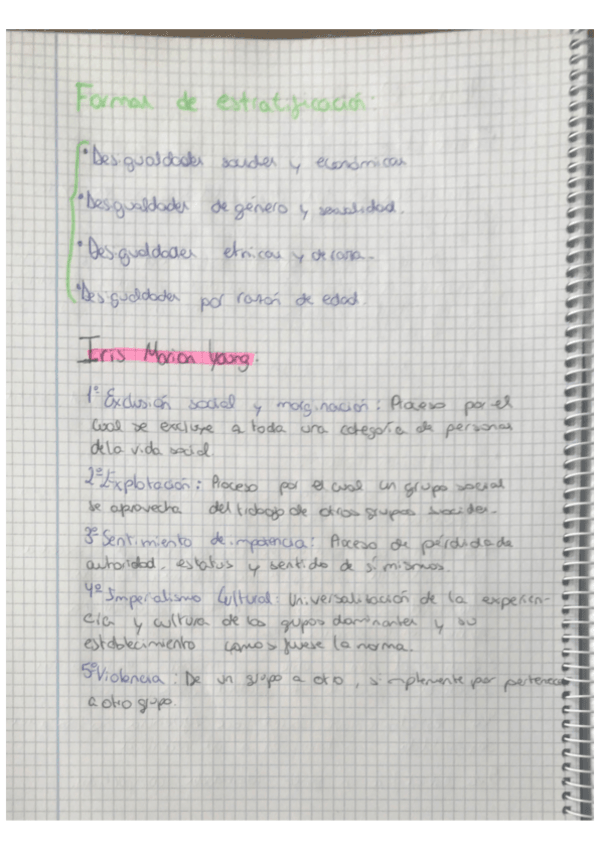 Formas de estratificación.
• Desigualdades sociales y económicas
• Desigualdades de género y sexualidad.
• Desigualdades etnicas y de raza.
• Desigualdades por razón de edad.
Iris Marion Young.
1º Exclusión social y marginación: Proceso por el
cual se excluye a toda una categoría de personas
de la vida social
2º Explotación: Proceso por el cual un grupo social
se aprovecha del trabajo de otros grupos sociales.
3º Sentimiento de impotencia: Proceso de pérdida de
autoridad, estatus y sentido de sí mismos.
4º Imperialismo Cultural: Universalización de la experien-
cia y cultura de los grupos dominantes y su
establecimiento como si fuese la norma.
5º Violencia: De un grupo a otro, simplemente por pertenecer
a otro grupo.